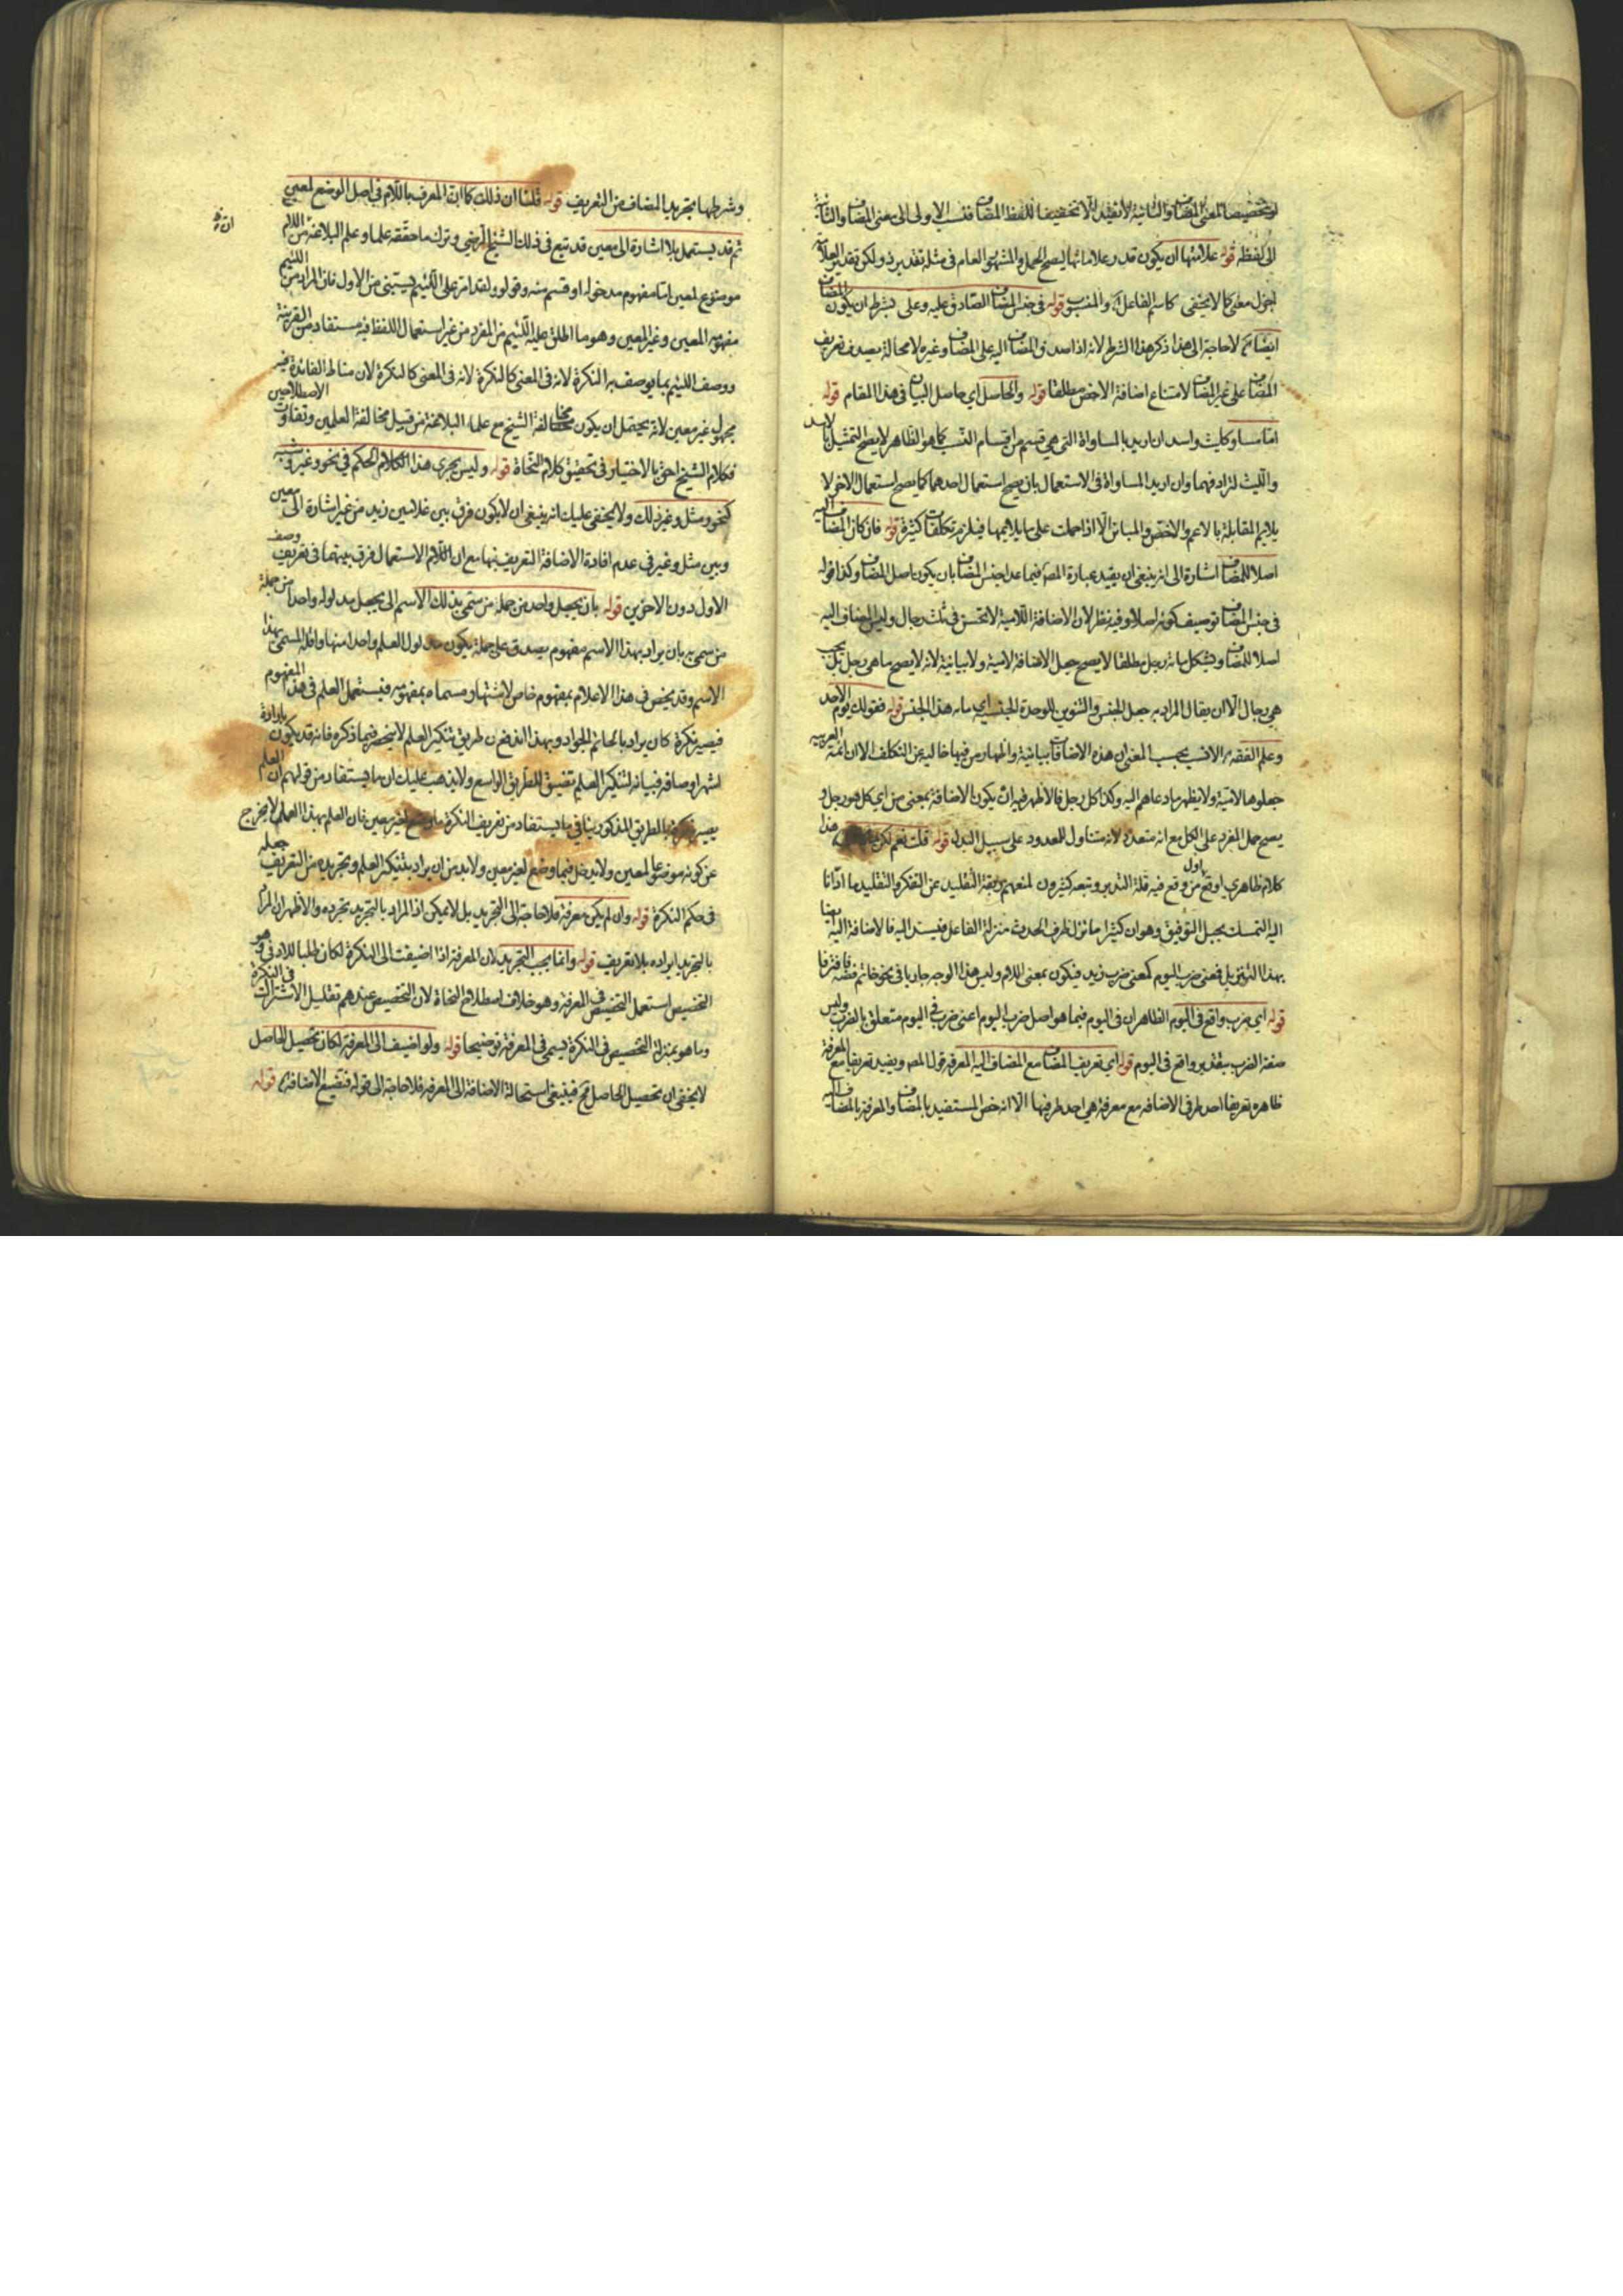 او تخصيصا لمعنى المضاف والثانية لا تفيد الا تخفيفا للفظ المضاف فنسب الاولى الى معنى المضاف والثانية
الى لفظه قوله علامتها ان يكون قدر وعلاماتها ليصح الحمل والمشهور العام في مثله تقدير ذو ولكن تقدير العلامة
اجزل معنى كما لا يخفى كاسم الفاعل والمنسوب قوله في جنس المضاف الصادق عليه وعلى بشرط ان يكون المضاف
ايضا كم لا حاجة الى هذا ذكر هذا الشرط لانه اذا صدق المضاف اليه على المضاف وغيره لا محالة يصدق تعريف
المضاف على غير المضاف لامتناع اضافة الاخص مطلقا قوله والحاصل اي حاصل البيان في هذا المقام قوله
اما مساو كليث واسد ان اريد بالمساواة التي هي قسم من اقسام النسب كما هو الظاهر لا يصح التمثيل بالاسد
والليث لترادفهما وان اريد المساواة في الاستعمال بان يصح استعمال احدهما كما يصح استعمال الاخر لا
يلايم المقابلة بالاعم والاخص والمباين الا اذا حملت على ما يلايمها فيلزم تكلفات كثيرة قوله فان كان المضاف اليه
اصلا للمضاف اشارة الى انه ينبغي ان يقيد عبارة المص فيما عدا جنس المضاف بان يكون اصل المضاف وكذا قوله
في جنس المضاف توصيف كونه اصلا وفيه نظر لان الاضافة اللامية لا تحسن في ثلث رجال وليس المضاف اليه
اصلا للمضاف ويشكل مائة رجل مطلقا لا يصح جعل الاضافة لامية ولا بيانية لانه لا يصح ما هي رجل بل يجب
هي رجال الا ان يقال المراد به جعل الجنس والتنوين للوحدة الجنس اي مائة هذا الجنس قوله فقولك يوم الاحد
وعلم الفقه الانسب بحسب المعنى ان هذه الاضافات بيانية واظهار من فيها خالية عن التكلف الا ان ائمة العربية
جعلوها لامية ولا يظهر ما دعاهم اليه وكذا كل رجل فالاظهر فيه ان يكون الاضافة بمعنى من اي كل هو رجل و
يصح حمل المفرد على الكل مع انه متعدد لانه متناول للمعدود على سبيل البدل قوله قلت نعم لكن هذا
كلام ظاهري اوقع من وقع فيه قلة التدبر وتبعه كثيرون لمنعهم ربقة التقليد عن التفكر والتقليد ما اداتا
اليه التمسك بحبل التوفيق وهو ان كثيرا ما تؤل ظرف الحدث منزلة الفاعل فيسند اليه فالاضافة اليه
بهذا التنزيل فمعنى ضرب اليوم كمعنى ضرب زيد فيكون بمعنى اللام وليس هذا الوجه جاريا في نحو خاتم فضة فافترقا
قوله اي ضرب واقع في اليوم الظاهر ان في اليوم فيما هو اصل ضرب اليوم اعني ضرب في اليوم متعلق بالضرب وليس
صفة الضرب بتقدير واقع في اليوم قوله اي تعريف المضاف مع المضاف اليه المعرفة قول المص ويفيد تعريفا مع المعرفة
ظاهره تعريفا احد طرفي الاضافة مع معرفة هي احد طرفيها الا انه خص المستفيد بالمضاف والمعرفة بالمضاف اليه
وشرطها تجريد المضاف من التعريف قوله قلنا ان ذلك كما ان المعرف باللام في اصل الوضع لمعين
ثم قد يستعمل بلا اشارة الى معين قد تبع في ذلك الشيخ الرضي وترك ما حققه علماء علم البلاغة من اللام
موضوع لمعين اما مفهوم مدخوله او قسم منه وقوله ولقد امر على اللئيم يستبنى من الاول فان المراد من اللئيم
مفهومه المعين وغير المعين وهو ما اطلق عليه اللئيم من المفرد من غير استعمال اللفظ فيه مستفاد من القرينة
ووصف اللئيم بما يوصف به النكرة لانه في المعنى كالنكرة لانه في المعنى كالنكرة لان مناط الفائدة فيه
مجهول غير معين لانه يحتمل ان يكون مخالفة الشيخ مع علماء البلاغة من قبيل مخالفة العلمين وتفاوت الاصطلاحين
فكلام الشيخ احق بالاختيار في تحقيق كلام النحاة قوله وليس يجري هذا الكلام الحكم في نحو وغير وشبه
كنحو ومثل وغير ذلك ولا يخفى عليك انه ينبغي ان لا يكون فرق بين غلامين زيد من غير اشارة الى معين
وبين مثل وغير في عدم افادة الاضافة التعريف فيها مع ان اللام الاستعمال فرق بينهما في تعريف وصف
الاول دون الاخرين قوله بان يجعل واحد من جملة من سمي بذلك الاسم الى يجعل مدلوله واحدا من جملة
من سمي به بان يراد بهذا الاسم مفهوم يصدق على جملة يكون مدلول العلم واحدا منها واقله المسمى بهذا
الاسم وقد يخص في هذا الاعلام بمفهوم خاص لاشتهار مسماه بمفهومه فيستعمل العلم في هذا المفهوم
فيصير نكرة كان يراد بالحاتم الجواد وبهذا اتضح ان طريق تنكير العلم لا ينحصر فيما ذكره فانه قد يكون بارادة
اشهر اوصافه فبيانه لتنكير العلم تضييق للطريق الواسع ولا يذهب عليك ان ما يستفاد من قولهم ان العلم
يصير نكرة بالطريق المذكور ينافي ما يستفاد من تعريف النكرة ما وضع لغير معين فان العلم بهذا العمل لا يخرج
عن كونه موضوعا لمعين ولا يدخل فيما وضع لغير معين ولا بد من ان يراد بتنكير العلم وتجريده من التعريف جعله
في حكم النكرة قوله وان لم يكن معرفة فلا حاجة الى التجريد بل لا يمكن اذ المراد بالتجريد تجرده والاظهر ان المراد
بالتجريد ايراده بلا تعريف قوله وانما يجب التجريد لان المعرفة اذا اضيفت الى النكرة لكان طلبا للادنى وهو
التخصيص استعمل التخصيص في المعرفة وهو خلاف اصطلاح النحاة لان التخصيص عندهم تقليل الاشتراك في النكرة
وما هو بمنزلة التخصيص في النكرة يسمى في المعرفة توضيحا قوله ولو اضيف الى المعرفة لكان تحصيل الحاصل
لا يخفى ان تحصيل الحاصل مح فينبغي استحالة الاضافة الى المعرفة فلا حاجة الى قوله فتضيع الاضافة قوله